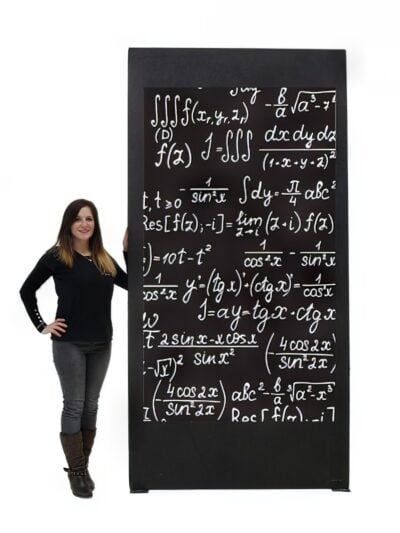 ∫∫∫ f(xr, yr, zr) -b/a √a³-7⁴
(D)
f(z) J=∫∫∫ dxdydz/(1-x+y+z)²
t, t≥0 -1/sin²x ∫dy=π/4 abc²
Res[f(z),-i]=lim z→i (z+i) f(z)
)=10t-t² 1/cos²x - 1/sin²x
1/cos²x y'=(tgx)'+(ctgx)'=1/cos²x
J=ay=tgx·ctgx
2sinx-xcosx/sinx² (4cos2x/sin²2x)
-√x)² abc²-b/a ³√a²-x³
(4cos2x/sin²2x) Res[f(z),-i]